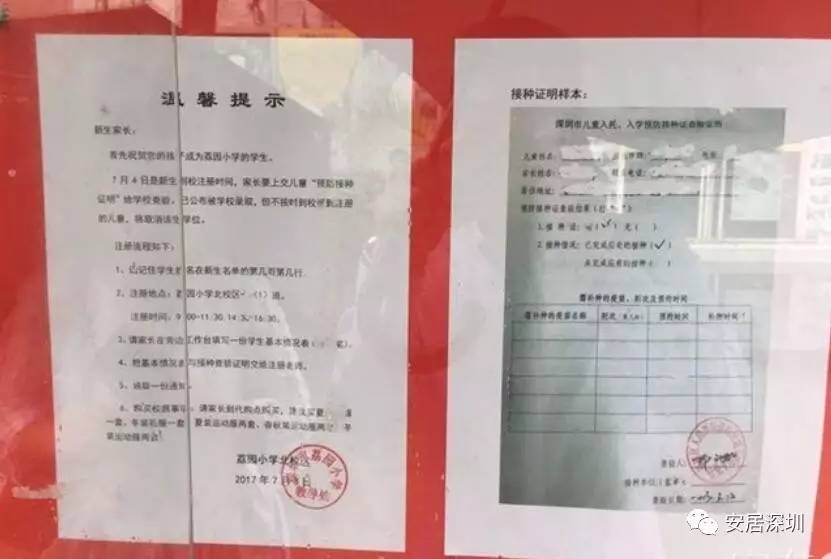 温馨提示
新生家长:
首先祝贺您的孩子成为荔园小学的学生。
7月4日是新生到校注册时间,家长要上交儿童“预防接种
证明”给学校查验,已公布被学校录取,但不按时到校报到注册
的儿童,将取消该生学位。
注册流程如下:
1、请记住学生姓名在新生名单的第几页第几行。
2、注册地点:荔园小学北校区 (1)班。
注册时间:9:00-11:30 14:3 -16:30。
3、请家长在旁边工作台填写一份学生基本情况表( 名)。
4、把基本情况表与接种查验证明交给注册老师。
5、领取一份通知
6、购买校服事 :请家长到代购点购买,建议买夏
一套、冬装礼服一套 夏装运动服两套、春秋装运动服两 冬
装运动服两
荔园小学北校区
2017年7月3日
荔园小学
教学处
接种证明样本:
深圳市儿童入托、入学预防接种证查验证明
儿童姓名:
家长姓名: 联系电话:
居住地址:
预防接种证查验结果(打“√”)
1.接种证:有(√) 无( )
2.接种情况:已完成应免的接种(√)
未完成应有的接种( )
需补种的疫苗、剂次及预约时间
需补种的疫苗名称 剂次 预约时间 补种时间
查验人:
接种单位(盖章):
查验日期:
安居深圳